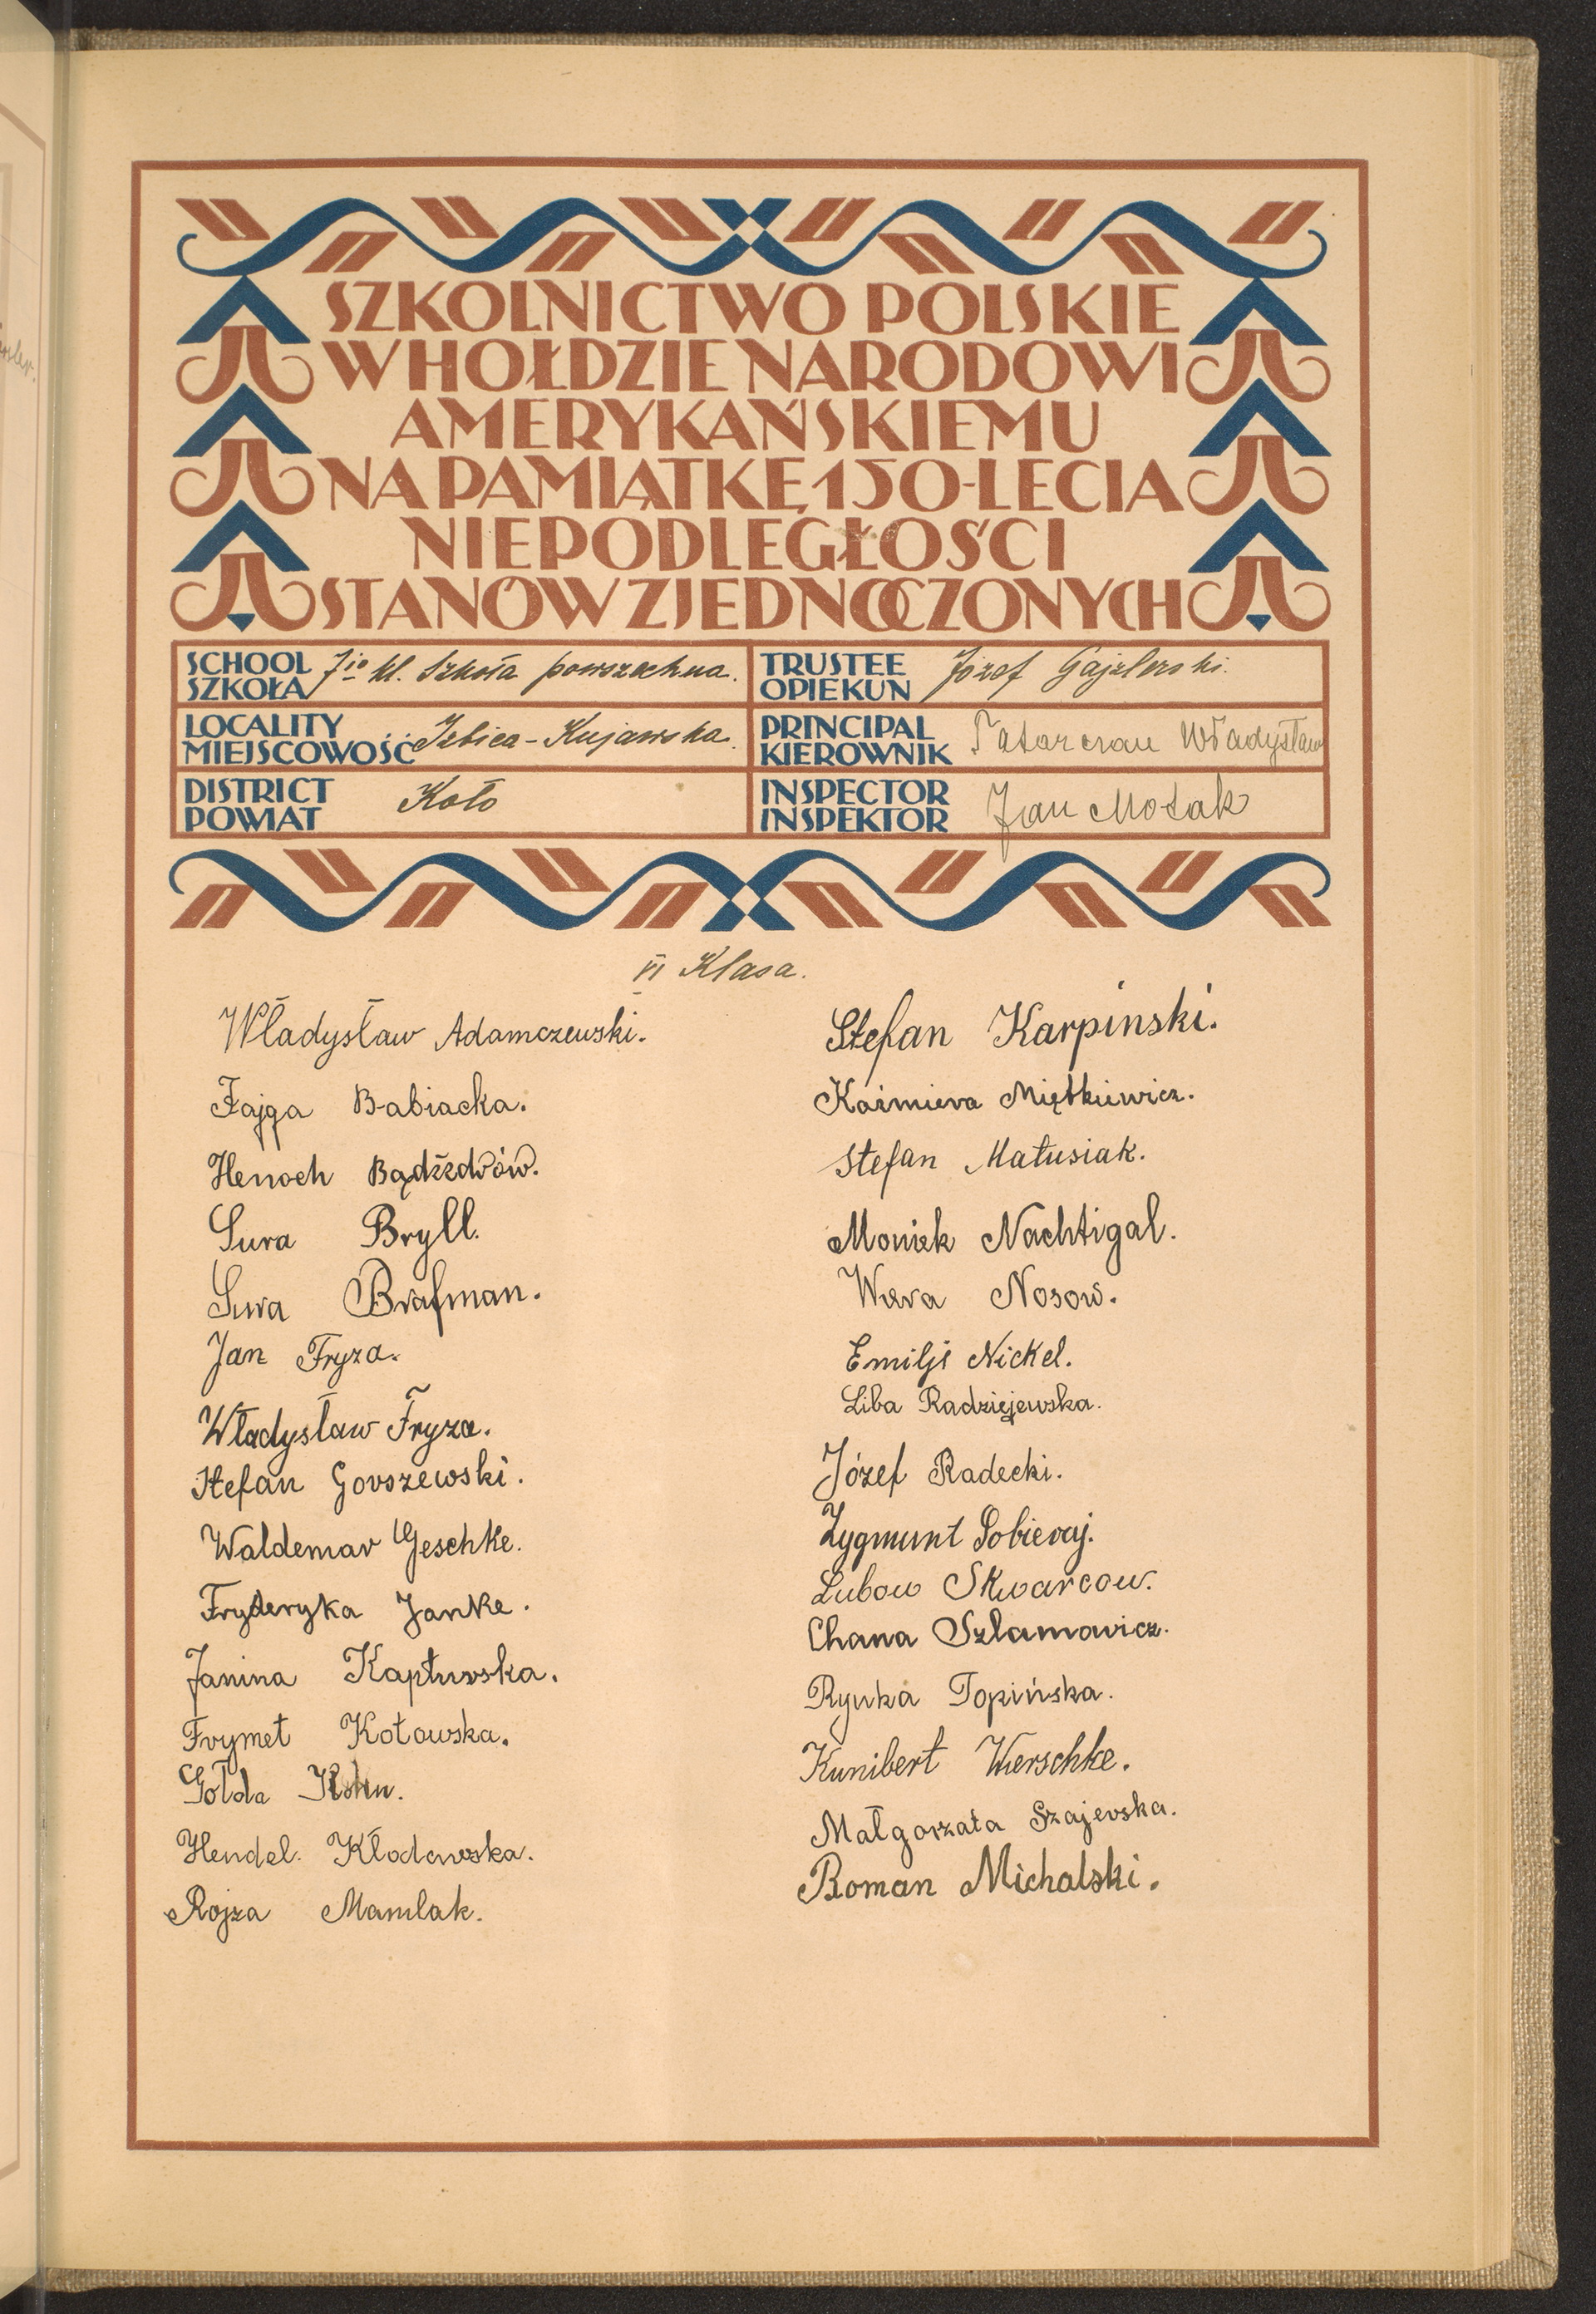 SZKOLNICTWO POLSKIE
W HOŁDZIE NARODOWI
AMERYKAŃSKIEMU
NA PAMIĄTKĘ 150-LECIA
NIEPODLEGŁOŚCI
STANÓW ZJEDNOCZONYCH
SCHOOL
SZKOŁA
7io kl. Szkoła powszechna.
TRUSTEE
OPIEKUN
Józef Gajzlerski.
LOCALITY
MIEJSCOWOŚĆ
Izbica-Kujawska.
PRINCIPAL
KIEROWNIK
Tatarczan Władysław
DISTRICT
POWIAT
Koło
INSPECTOR
INSPEKTOR
Jan
VI Klasa.
Władysław Adamczewski.
Fajga Babiacka.
Henoch Bądźzdrów.
Sura Bryll.
Sura Brafman.
Jan Fryza.
Władysław Fryza.
Stefan Gorszewski.
Waldemar Geschke.
Fryderyka Janke.
Janina Kapturska.
Frymet Kotowska.
Gołda Kohn.
Hendel. Kłodawska.
Rojza Mamlak.
Stefan Karpinski.
Kaźmiera Miętkiewicz.
Stefan Matusiak.
Moniek Nachtigal.
Wiera Nosow.
Emilji Nickel.
Liba Radziejewska.
Józef Radecki.
Zygmunt Sobieraj.
Lubow Skwarcow.
Chana Szlamowicz.
Rywka Topińska.
Kunibert Wierschke.
Małgorzata Szajerska.
Roman Michalski.